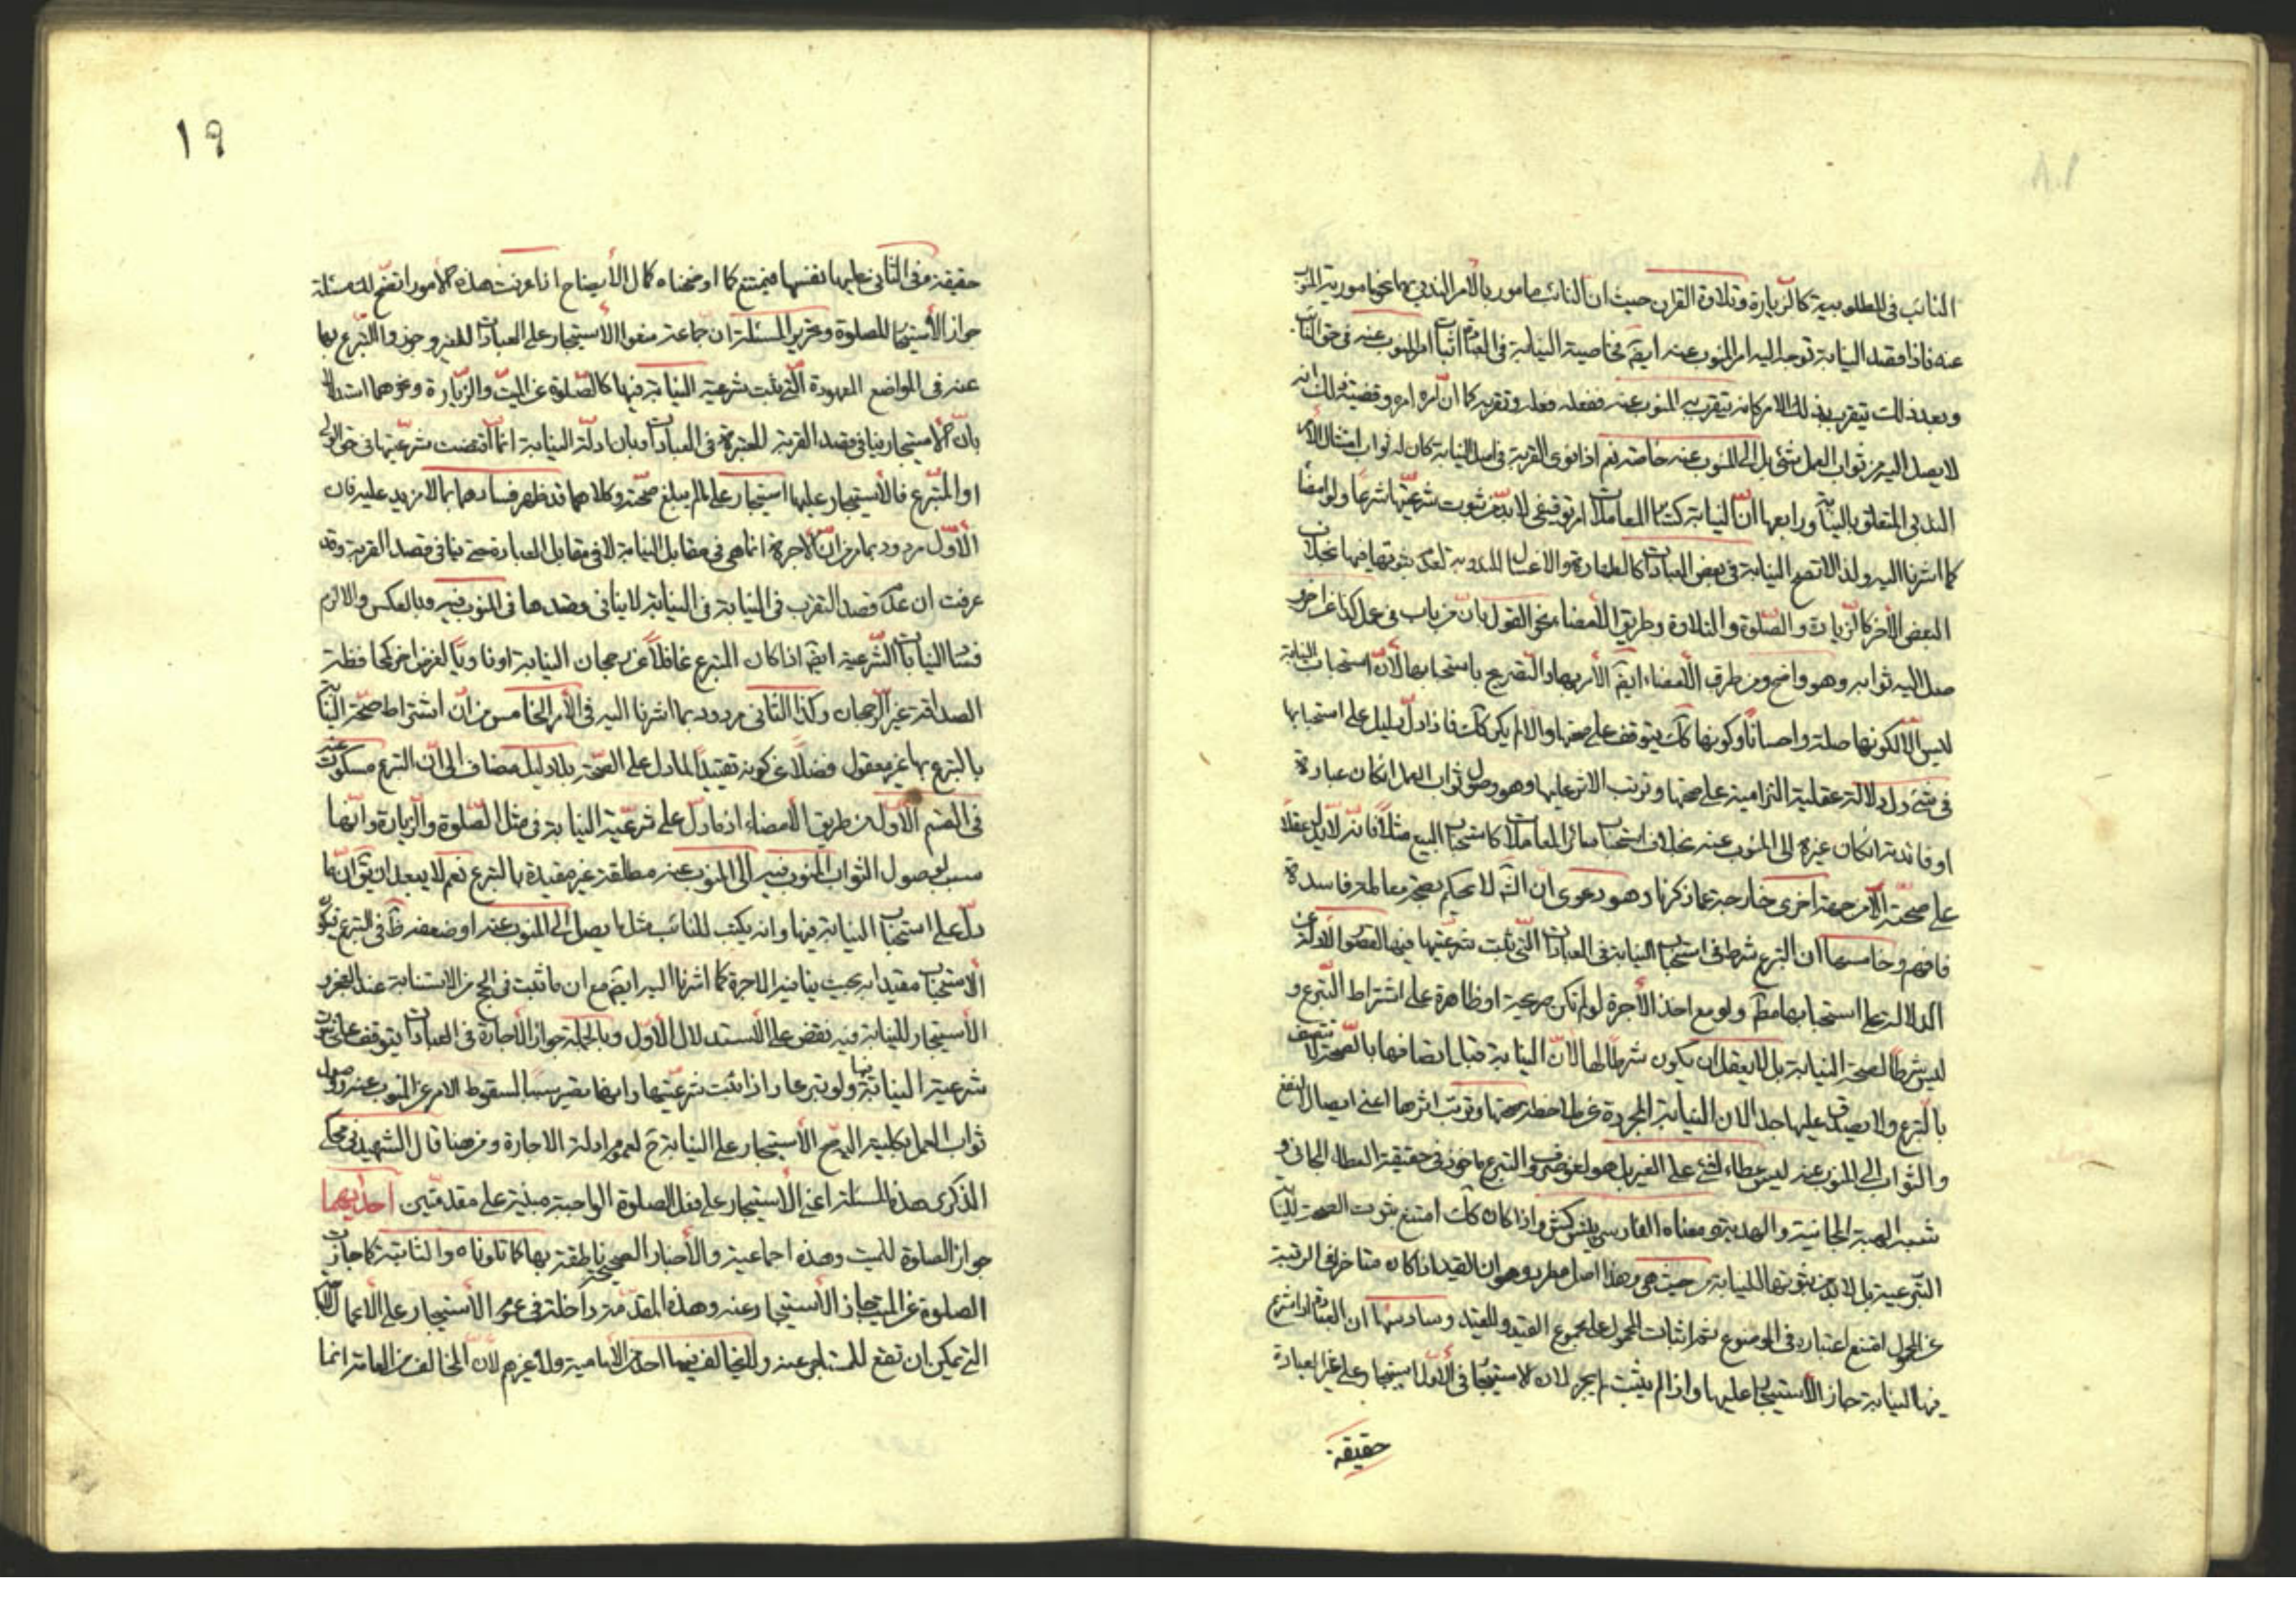 النائب فى المطلوبية كالزيارة وتلاوة القران حيث ان النائب مامور بالأمر الندبى بها نحو مامورية المنوب
عنه فاذا قصد النيابة توجه اليه امر المنوب عنه ايضا فخاصية النيابة فى العبادات اثبات امر المنوب عنه فى حق النائب
وبعد ذلك يتقرب بذلك الامر كانه يتقرب به المنوب عنه ففعله فعله وتقربه كما ان امره امره وقضية ذلك انه
لا يصل اليه من ثواب العمل شئ بل الى المنوب عنه خاصة نعم اذا نوى القربة فى اصل النيابة كان له ثواب امتثال الأمر
الندبى المتعلق بالنيابة ورابعها انّ النيابة كسائر المعاملات امر توقيفى لا بدّ من ثبوت شرعيتها شرعا ولو امضأ
كما اشرنا اليه ولذا لا تصح النيابة فى بعض العبادات كالطهارة والاغسال المندوبة لعدم ثبوتها فيها بخلاف
البعض الأخر كالزيارة والصّلوة والتلاوة وطريق الأمضاء نحو القول بانّ من ناب فى عمل كذا عن اخر
وصل اليه ثوابه وهو واضح ومن طرق الأمضاء ايضا الأمر بها والتصريح باستحبابها لأنّ استحباب النيابة
ليس الّا لكونها صلة واحسانا وكونها كك يتوقف على صحتها والا لم يكن كك فاذا دلّ دليل على استحبابها
فى شئ دل دلالة عقلية التزامية على صحتها وترتب الاثر عليها وهو وصول ثواب العمل انكان عبادة
او فائدته انكان غيره الى المنوب عنه بخلاف استحباب سائر المعاملات كاستحباب البيع مثلا فانه لا يدل عقلا
على صحّته الّا من جهة اخرى خارجة عما ذكرنا وهو دعوى ان الشه لا يحكم بصحة معاملة فاسدة
فافهم وخامسها ان التبرع شرط فى استحباب النيابة فى العبادات التّى ثبت شرعيتها فيها لقصور الأدلة عن
الدلالة على استحبابها مط ولو مع اخذ الأجرة لو لم تكن صريحة او ظاهرة على اشتراط التبرع و
ليس شرطا لصحة النيابة بل لا يعقل ان يكون شرطا لها لأنّ النيابة قبل اتصافها بالصحة لا تتصف
بالتبرع ولا يصدق عليها اذ النيابة المجردة عن ملاحظة صحتها وترتب اثرها اعنى ايصال النفع
والثواب الى المنوب عنه ليس عطاء لشئ على الغير بل هو لغو صرف والتبرع ماخوذ فى حقيقة العطاء المجانى و
شبه الهبة المجانية والهدية ومعناه الفارسى پيش كش واذا كان كك امتنع ثبوت الصحة للنيابة
التبرعية بل لا بد من ثبوتها للنيابة من حيث هى وهذا اصل مطرد وهو ان القيد اذا كان متاخرا فى الرتبة
عن المحمول امتنع اعتباره فى الموضوع ثم اثبات المحمول على مجموع القيد والمقيد وسادسها ان العبادة اذا شرع
فيها النيابة جاز الأستيجار عليها واذا لم يثبت لم يجز لان الاستيجار فى الأول استيجار على غير العبادة
حقيقة
١٩
حقيقة وفى الثانى عليها نفسها فيمتنع كما اوضحناه كمال الأيضاح اذا عرفت هذه الأمور اتضح لك مسئلة
جواز الأستيجار للصلوة وتحرير المسئلة ان جماعة منعوا الأستيجار على العبادات للغير وجوزوا التبرع بها
عنه فى المواضع المعهودة الّتى ثبت شرعية النيابة فيها كالصّلوة عن الميّت والزّيارة ونحوهما استدلالا
بانّ الأستيجار ينافى قصد القربة المعتبرة فى العبادات وبان ادلّة النيابة انما اقتضت شرعيّتها فى حق الولى
او المتبّرع فالأستيجار عليها استيجار على ما لم يبلغ صحّته وكلاهما قد ظهر فسادهما بما لا مزيد عليه فان
الأوّل مردود بما مر من انّ الأجرة انما هى فى مقابل النيابة لا فى مقابل العبادة حتى ينافى قصد القربة وقد
عرفت ان عدم قصد التقرب فى النيابة فى النيابة لا ينافى وقصدها فى المنوب فيه وبالعكس والا لزم
فساد النيابات الشرعية ايضا اذا كان المتبرع غافلا عن رجحان النيابة او ناويا لغرض اخر كمحافظة
الصداقة غير الرجحان وكذا الثانى مردود بما اشرنا اليه فى الأمر الخامس من انّ اشتراط صحّة النيابة
بالتبرع بها غير معقول فضلا عن كونه تقييدا لما دل على الصحّة بلا دليل مضافا الى انّ التبرع مسكوت عنه
فى القسم الأوّل من طريق الأمضاء اذ ما دلّ على شرعية النيابة فى مثل الصّلوة والزيارة وانها
سبب لوصول الثواب المنوب فيه الى المنوب عنه مطلقة غير مقيدة بالتبرع نعم لا يبعد ان يق انّ ما
دلّ على استحباب النيابة فيها وانه يكتب للنائب مثل ما يصل الى المنوب عنه او ضعفه ظ فى التبرع فيكون
الاستحباب مقيدا به بحيث ينافيه الاجرة كما اشرنا اليه ايضا مع ان ما ثبت فى الحج من الاستنابة عند العجز و
الأستيجار للنيابة فيه نقض على الأستدلال الأوّل وبالجملة جواز الأجارة فى العبادات يتوقف على ثبوت
شرعية النيابة فيها ولو تبرعا واذا ثبت شرعيّتها وانها تصير سببا لسقوط الامر عن المنوب عنه ووصول
ثواب العمل بكليته اليه صح الأستيجار على النيابة ح لعموم ادلة الاجارة ومن هنا قال الشهيد فى محكى
الذكرى هذه المسئلة اعنى الأستيجار على فعل الصلوة الواجبة مبنية على مقدمتين احديهما
جواز الصلوة للميت وهذه اجماعية والأخبار الصحيحة ناطقة بها كما تلوناه والثانية كلما جازت
الصلوة عن الميت جاز الأستيجار عنه وهذه المقدّمة داخلة فى عموم الأستيجار على الأعمال المباحة
التى يمكن ان تقع للمستاجر عنه ولا يخالف فيها احد من الأمامية ولا غيرهم لأن المخالف من العامة انما